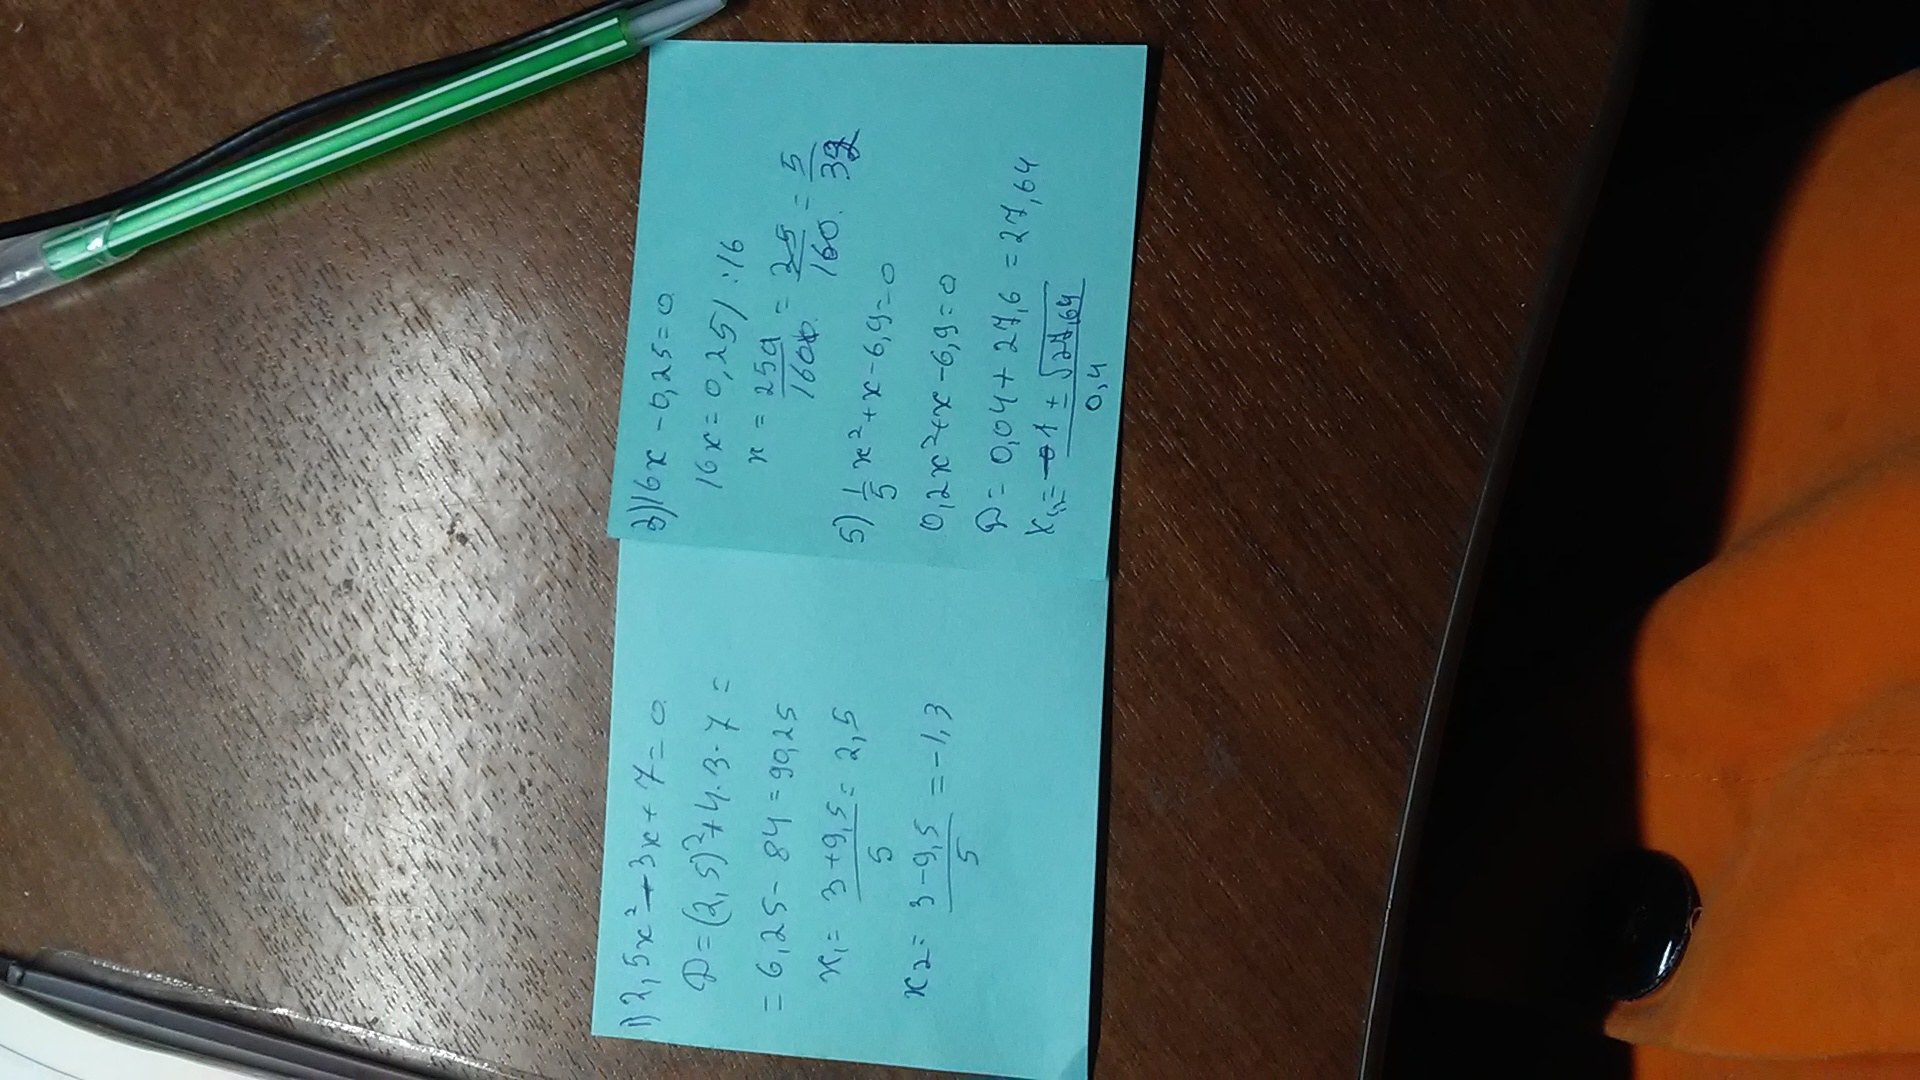 1) 2,5x² - 3x + 7 = 0
D = (2,5)² + 4·3·7 =
= 6,25 - 84 = 90,25
x₁ = (3 + 9,5)/5 = 2,5
x2 = (3 - 9,5)/5 = -1,3
3) 16x - 0,25 = 0
16x = 0,25 / :16
x = 250/1600 = 25/160 = 5/32
5) 1/5 x² + x - 6,9 = 0
0,2x² + x - 6,9 = 0
D = 0,04 + 27,6 = 27,64
x₁,₂ = (-1 ± √27,64)/0,4